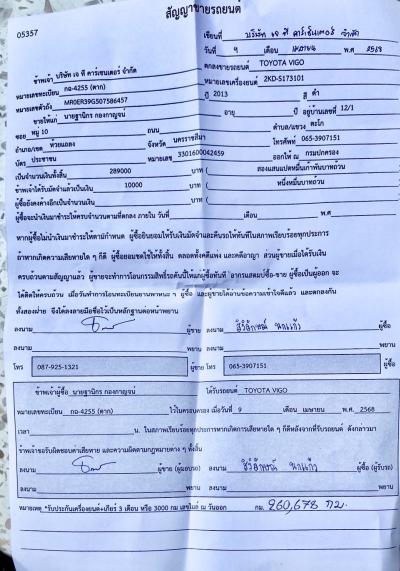 สัญญาขายรถยนต์
05357
เขียนที่ บริษัท เจ ที คาร์เซ็นเตอร์ จำกัด
วันที่ 9 เดือน เมษายน พ.ศ 2568
ข้าพเจ้า บริษัท เจ ที คาร์เซ็นเตอร์ จำกัด ตกลงขายรถยนต์ TOYOTA VIGO
หมายเลขทะเบียน กอ-4255 (ตาก) หมายเลขเครื่องยนต์ 2KD-S173101
หมายเลขตัวถัง MR0ER39G507586457 ปี 2013 สี ดำ
ขายให้แก่ นายฐานิกร กองกาญจน์ อายุ ปี อยู่บ้านเลขที่ 12/1
ซอย หมู่ 10 ถนน ตำบล/แขวง ตะโก
อำเภอ/เขต ห้วยแถลง จังหวัด นครราชสีมา โทรศัพท์ 065-3907151
บัตร ประชาชน หมายเลข 3301600042459 ออกให้ ณ กรมปกครอง
เป็นจำนวนเงินทั้งสิ้น 289000 บาท ( สองแสนแปดหมื่นเก้าพันบาทถ้วน
ข้าพเจ้าได้รับมัดจำแล้วเป็นเงิน 10000 บาท ( หนึ่งหมื่นบาทถ้วน
ผู้ซื้อยังคงค้างอีกเป็นจำนวนเงิน บาท (
ผู้ซื้อจะนำเงินมาชำระให้ครบจำนวนตามที่ตกลง ภายใน วันที่ เดือน พ.ศ
หากผู้ซื้อไม่นำเงินมาชำระให้ตามกำหนด ผู้ซื้อยินยอมให้ริบเงินมัดจำและคืนรถให้ทันทีในสภาพเรียบร้อยทุกประการ
ถ้าหากเกิดความเสียหายใด ๆ ก็ดี ผู้ซื้อยอมชดใช้ให้ทั้งสิ้น ตลอดทั้งคดีแพ่ง และคดีอาญา ส่วนผู้ขายเมื่อได้รับเงิน
ครบถ้วนตามสัญญาแล้ว ผู้ขายจะทำการโอนกรรมสิทธิ์รถคันนี้ให้แก่ผู้ซื้อทันที อากรแสตมป์ซื้อ-ขาย ผู้ซื้อเป็นผู้ออก จะ
ได้ติดให้ครบถ้วน เมื่อวันทำการโอนทะเบียนยานพาหนะ ๆ ผู้ซื้อ และผู้ขายได้อ่านข้อความเข้าใจดีแล้ว และตกลงกัน
ทั้งสองฝ่าย จึงได้ลงลายมือชื่อไว้เป็นหลักฐานต่อหน้าพยาน
ลงนาม ผู้ขาย ลงนาม ผู้ซื้อ
ลงนาม พยาน ลงนาม พยาน
โทร 087-925-1321 ผู้ขาย โทร 065-3907151 ผู้ซื้อ
ข้าพเจ้าผู้ซื้อ นายฐานิกร กองกาญจน์ ได้รับรถยนต์ TOYOTA VIGO
หมายเลขทะเบียน กอ-4255 (ตาก) ไว้ในครอบครอง เมื่อวันที่ 9 เดือน เมษายน พ.ศ. 2568
เวลา น. ในสภาพเรียบร้อยทุกประการหากเกิดการเสียหายใด ๆ ก็ดีหลังจากที่รับรถยนต์ ดังกล่าวมา
ข้าพเจ้าขอรับผิดชอบค่าเสียหาย และความผิดตามกฎหมายต่าง ๆ ทั้งสิ้น
ลงนาม ผู้ขาย (ผู้มอบรถ) ลงนาม ผู้ซื้อ (ผู้รับรถ)
ลงนาม พยาน ลงนาม พยาน
หมายเหตุ *รับประกันเครื่องยนต์+เกียร์ 3 เดือน หรือ 3000 กม เลขไมล์ ณ วันออก กม. 260,678 กม.